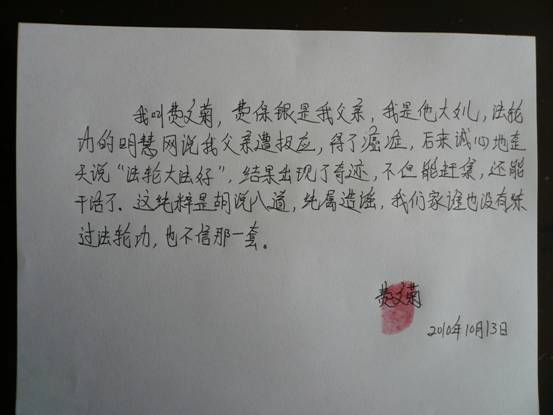 我叫费文菊，费保银是我父亲，我是他大儿，法轮
功的明慧网说我父亲遭报应，得了癌症，后来诚心地在
天说“法轮大法好”，结果出现了奇迹，不但能赶集，还能
干活了。这纯粹是胡说八道，纯属造谣，我们家谁也没有练
过法轮功，也不信那一套。
费文菊
2010年10月13日